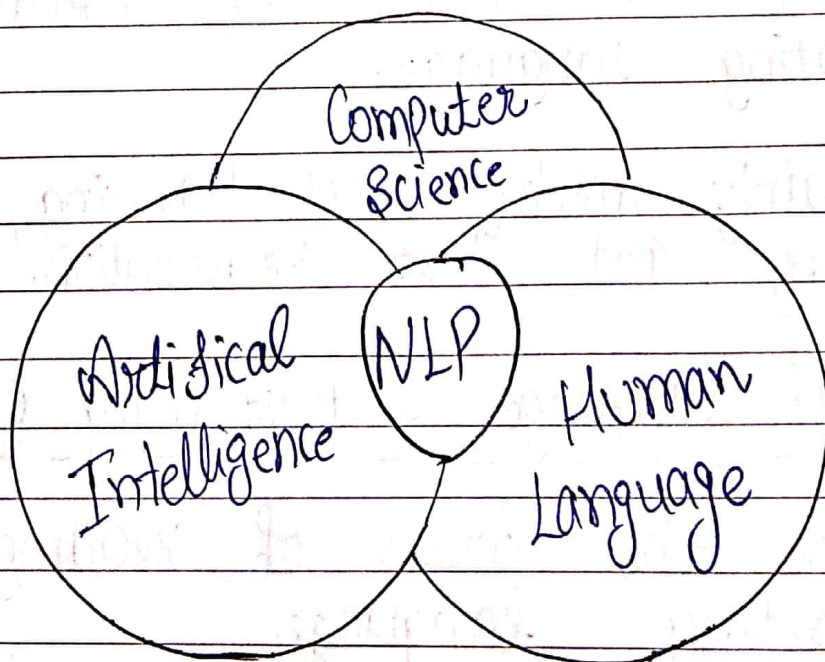 Computer
Science
Artifical
Intelligence
NLP
Human
Language